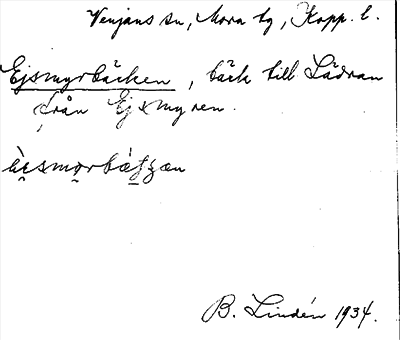 Venjans sn, Mora tg, Kopp. l.
Ejsmyrbäcken, bäck till Lädran
från Ejsmyren.
B. Lindén 1934.